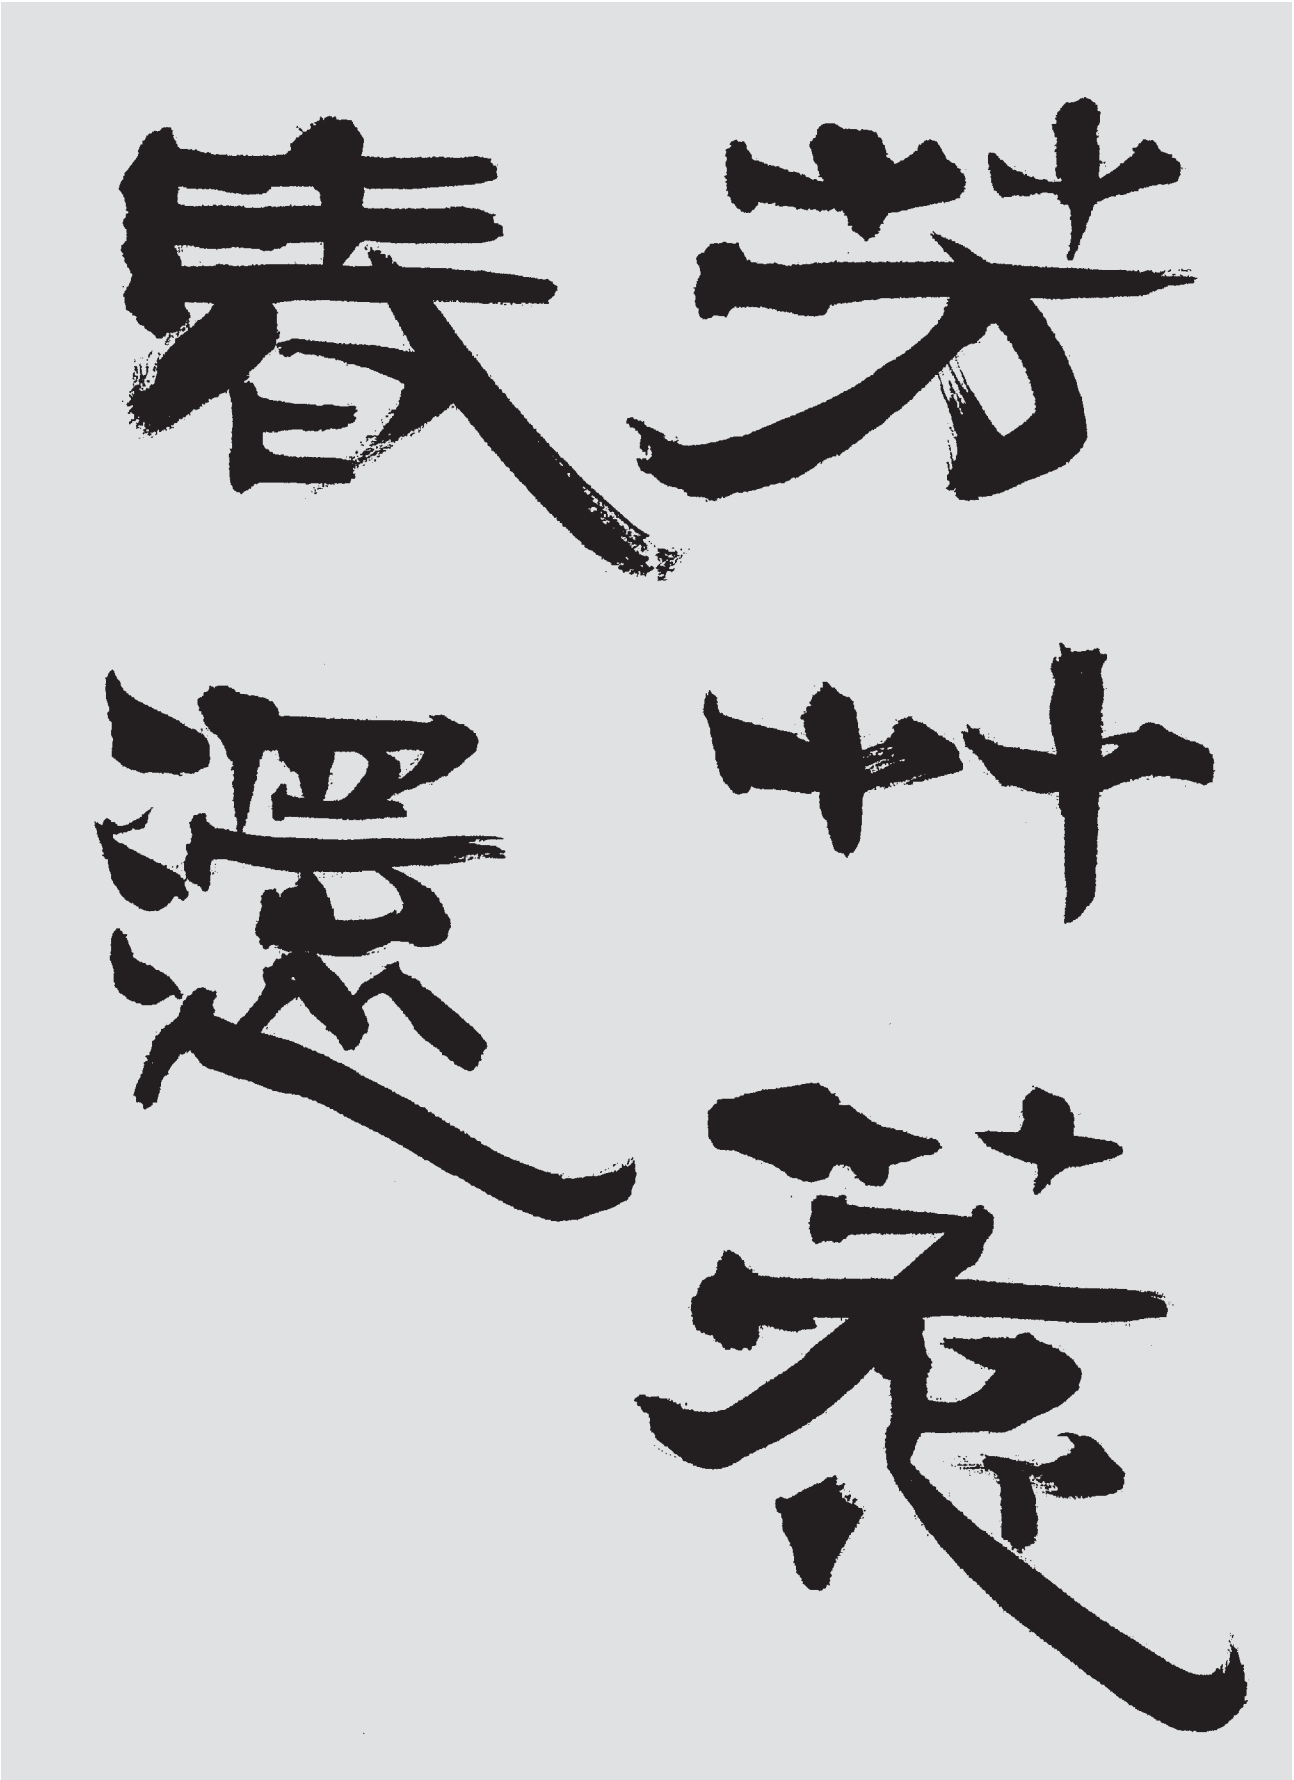 芳艸惹
春還